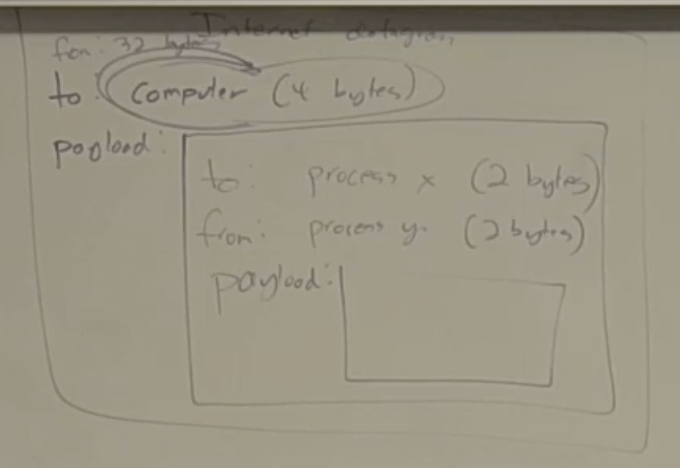 Internet datagram
from: 32 bytes
to: Computer (4 bytes)
payload:
to: process x (2 bytes)
from: process y. (2 bytes)
payload: